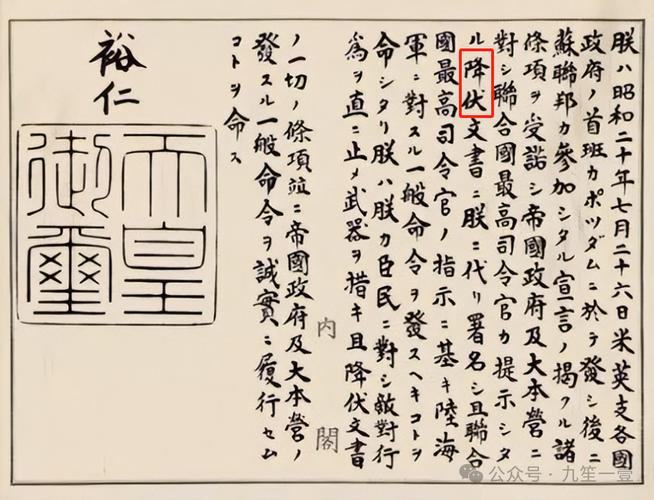 朕ハ昭和二十年七月二十六日米英支各國
政府ノ首班カポツダムニ於テ發シ後ニ
蘇聯邦カ參加シタル宣言ノ揭クル諸
條項ヲ受諾シ帝國政府及大本營ニ
對シ聯合國最高司令官カ提示シタ
ル降伏文書ニ朕ニ代リ署名シ且聯合
國最高司令官ノ指示ニ基キ陸海
軍ニ對スル一般命令ヲ發スヘキコトヲ
命シタリ朕ハ朕カ臣民ニ對シ敵對行
爲ヲ直ニ止メ武器ヲ措キ且降伏文書
内閣
ノ一切ノ條項竝ニ帝國政府及大本營ノ
發スル一般命令ヲ誠實ニ履行セム
コトヲ命ス
裕仁
天皇
御璽
公众号 · 九笙一壹